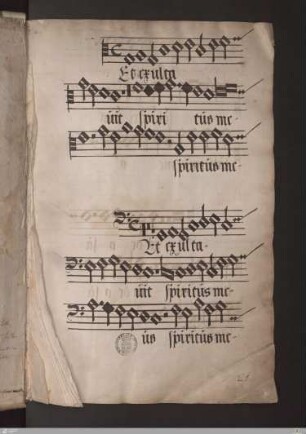 Et exulta
uit spiri tus me
spiritus me-
Et exulta-
uit spiritus me-
us spiritus me-